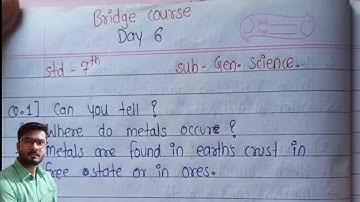 Bridge course
Day 6
std - 7th
sub - Gen. science.
Q.1] Can you tell ?
Where do metals occure ?
metals are found in earth's crust in
free state or in ores.